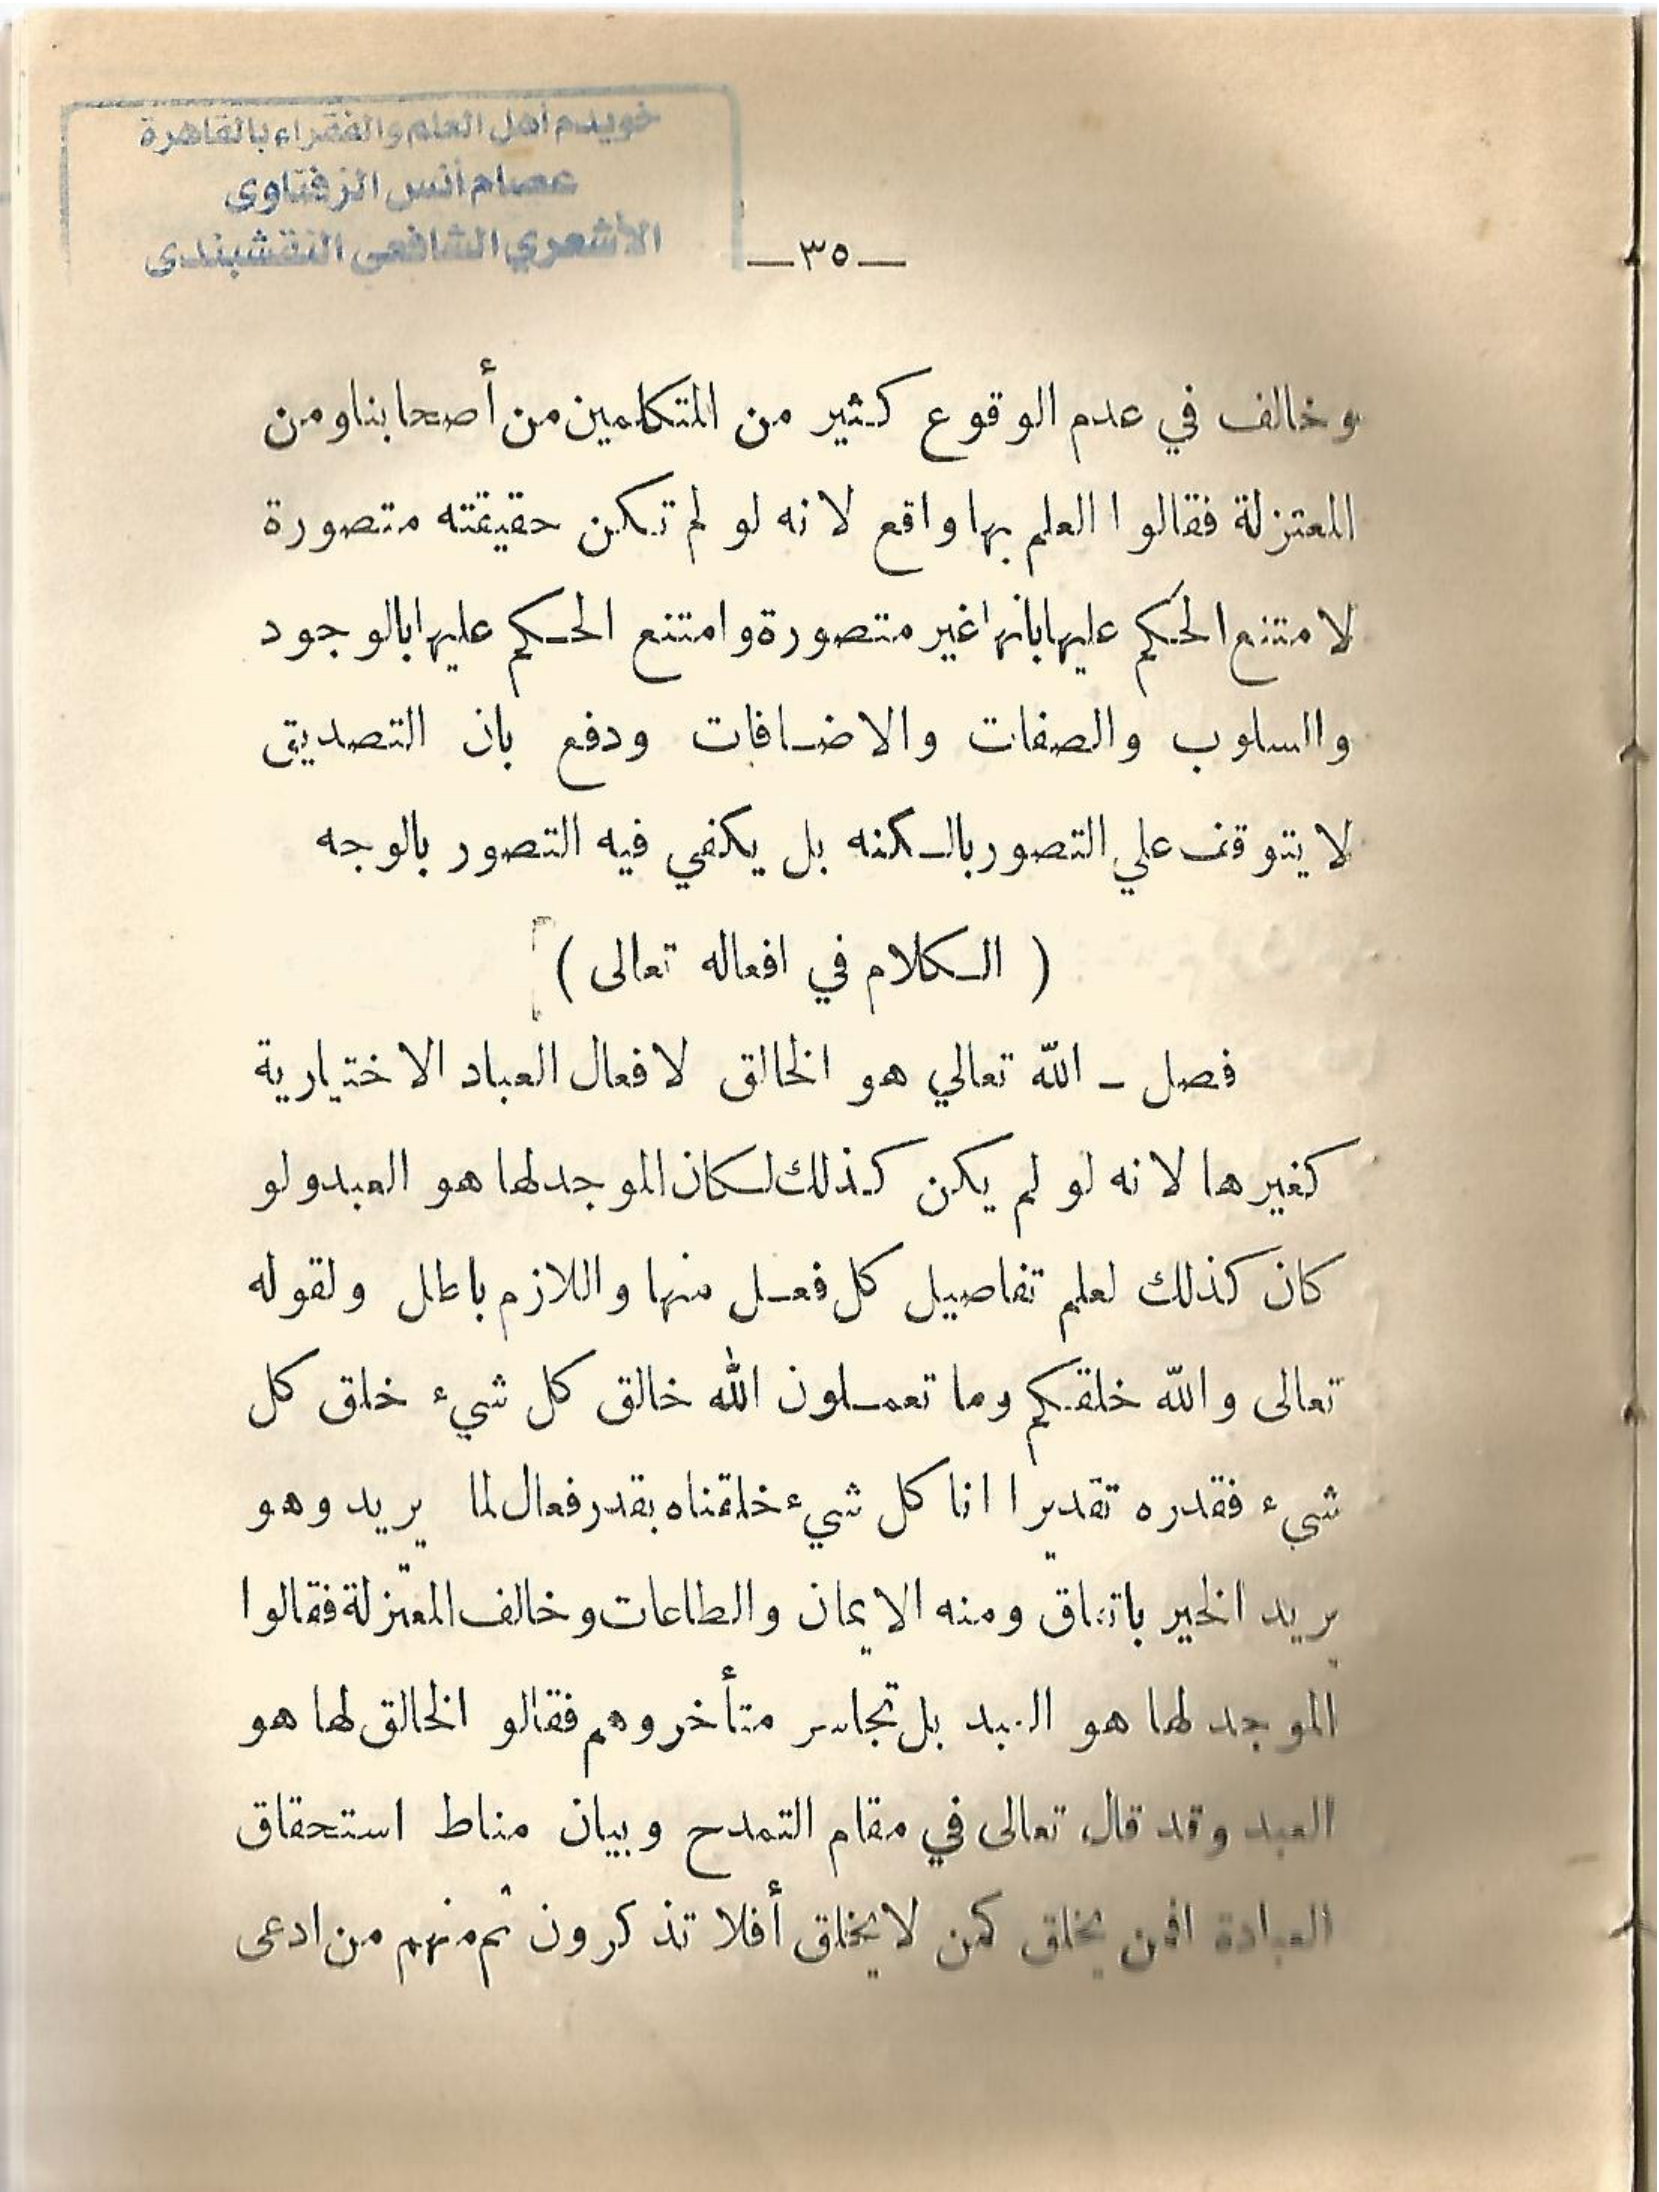 خويدم أهل العلم والفقراء بالقاهرة
عصام أنس الزفتاوى
الأشعري الشافعي النقشبندى
—٣٥—
وخالف في عدم الوقوع كثير من المتكلمين من أصحابنا ومن
المعتزلة فقالوا العلم بها واقع لانه لو لم تكن حقيقته متصورة
لامتنع الحكم عليها بأنها غير متصورة وامتنع الحكم عليها بالوجود
والسلوب والصفات والاضافات ودفع بان التصديق
لا يتوقف علي التصور بالكنه بل يكفي فيه التصور بالوجه
( الكلام في افعاله تعالى )
فصل – الله تعالي هو الخالق لافعال العباد الاختيارية
كغيرها لانه لو لم يكن كذلك لكان الموجد لها هو العبد ولو
كان كذلك لعلم تفاصيل كل فعل منها واللازم باطل ولقوله
تعالى والله خلقكم وما تعملون الله خالق كل شيء خلق كل
شيء فقدره تقديرا انا كل شيء خلقناه بقدر فعال لما يريد وهو
يريد الخير باتفاق ومنه الايمان والطاعات وخالف المعتزلة فقالوا
الموجد لها هو العبد بل تجاسر متأخروهم فقالو الخالق لها هو
العبد وقد قال تعالى في مقام التمدح وبيان مناط استحقاق
العبادة افمن يخلق كمن لا يخلق أفلا تذكرون ثم منهم من ادعى